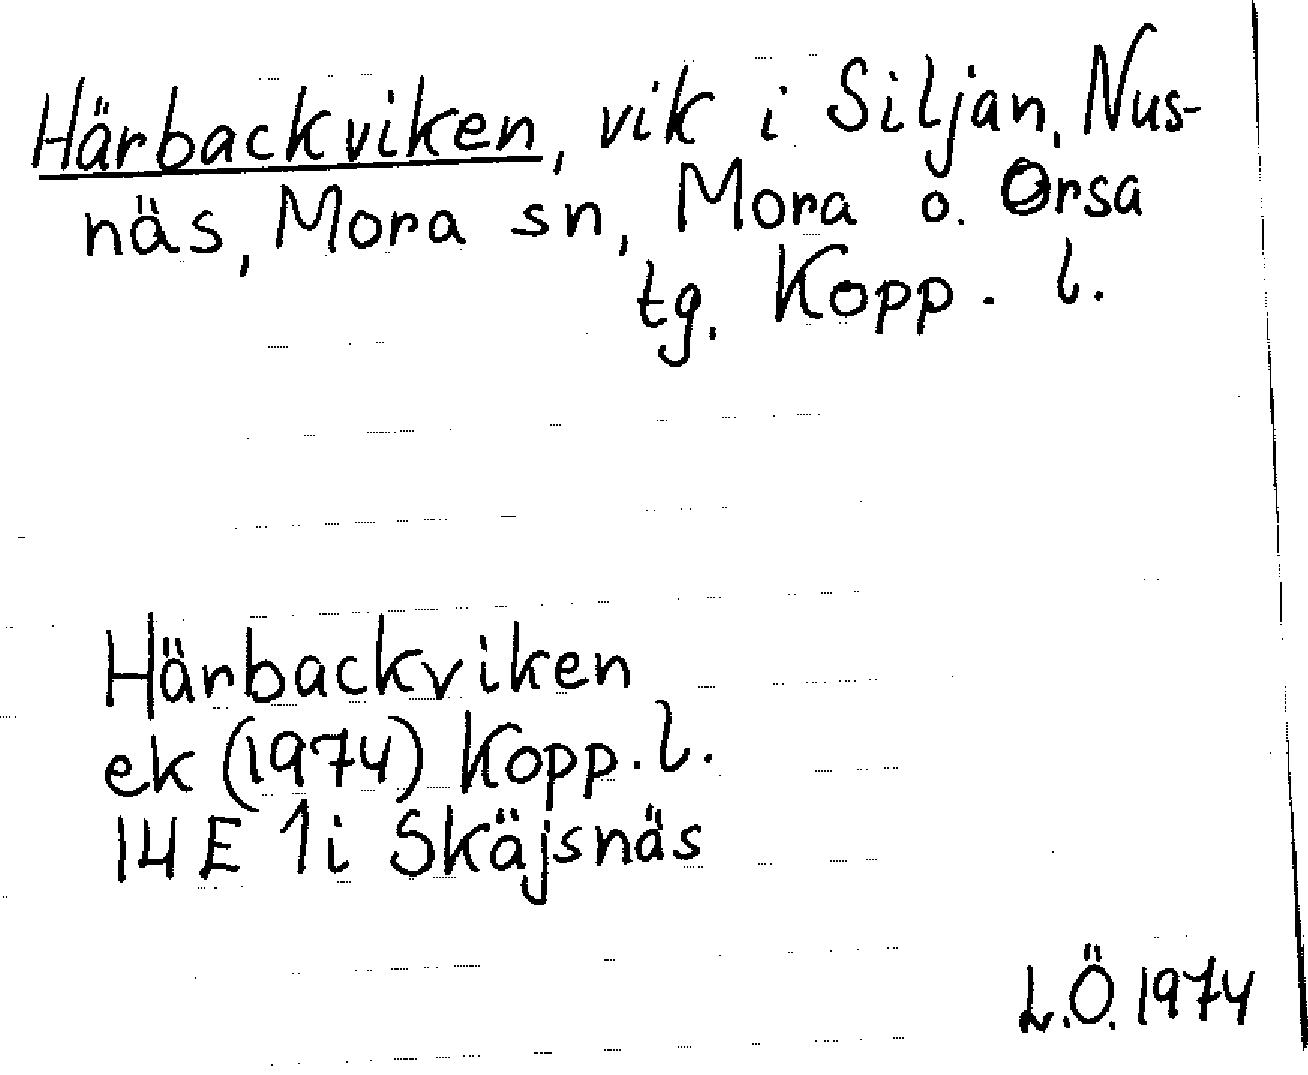 Härbackviken, vik i Siljan, Nus-
näs, Mora sn, Mora o. Orsa
tg. Kopp. l.
Härbackviken
ek (1974) Kopp. l.
14 E 1i Skäjsnäs
L.Ö. 1974